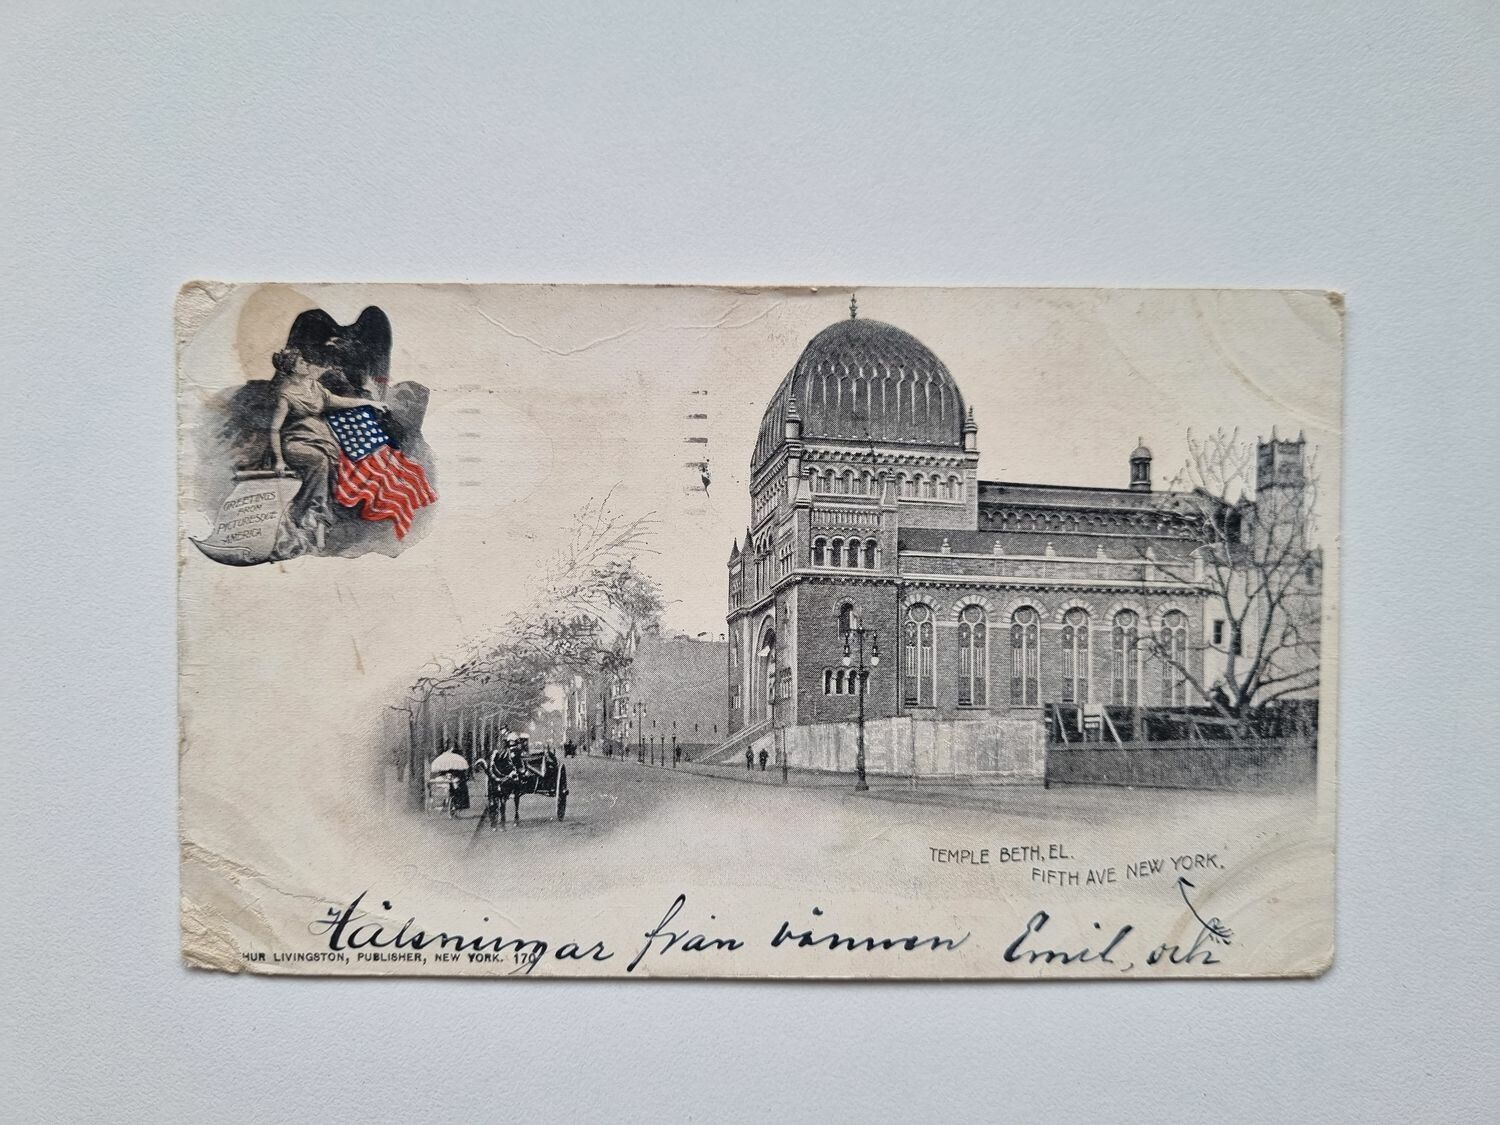 GREETINGS
FROM
PICTURESQUE
AMERICA
TEMPLE BETH, EL.
FIFTH AVE NEW YORK.
Hälsningar från vännen Emil, och
HUR LIVINGSTON, PUBLISHER, NEW YORK. 170